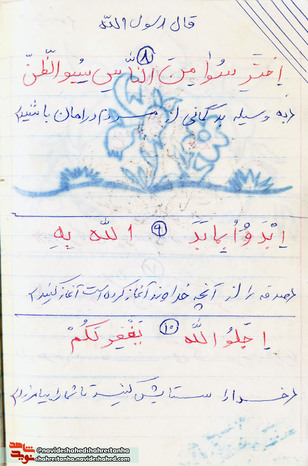 قال رسول الله
۸
اِحتَرِسُوا مِنَ النّاسِ بِسُوءِ الظَّنِّ
(به وسیله بدگمانی از مردم در امان باشید)
اِبْدَؤُا بِمابَدَ ۹ الله بِهِ
(صدقه را از آنچه خداوند آغاز کرده است آغاز کنید)
اِجَلُّو الله ۱۰ یَغْفِرلَکُمْ
(خدا را ستایش کنید تا شما را بیامرزد)
@navideshahed.shahrestanha
shahrestanha.navideshahed.com
نوید شاهد